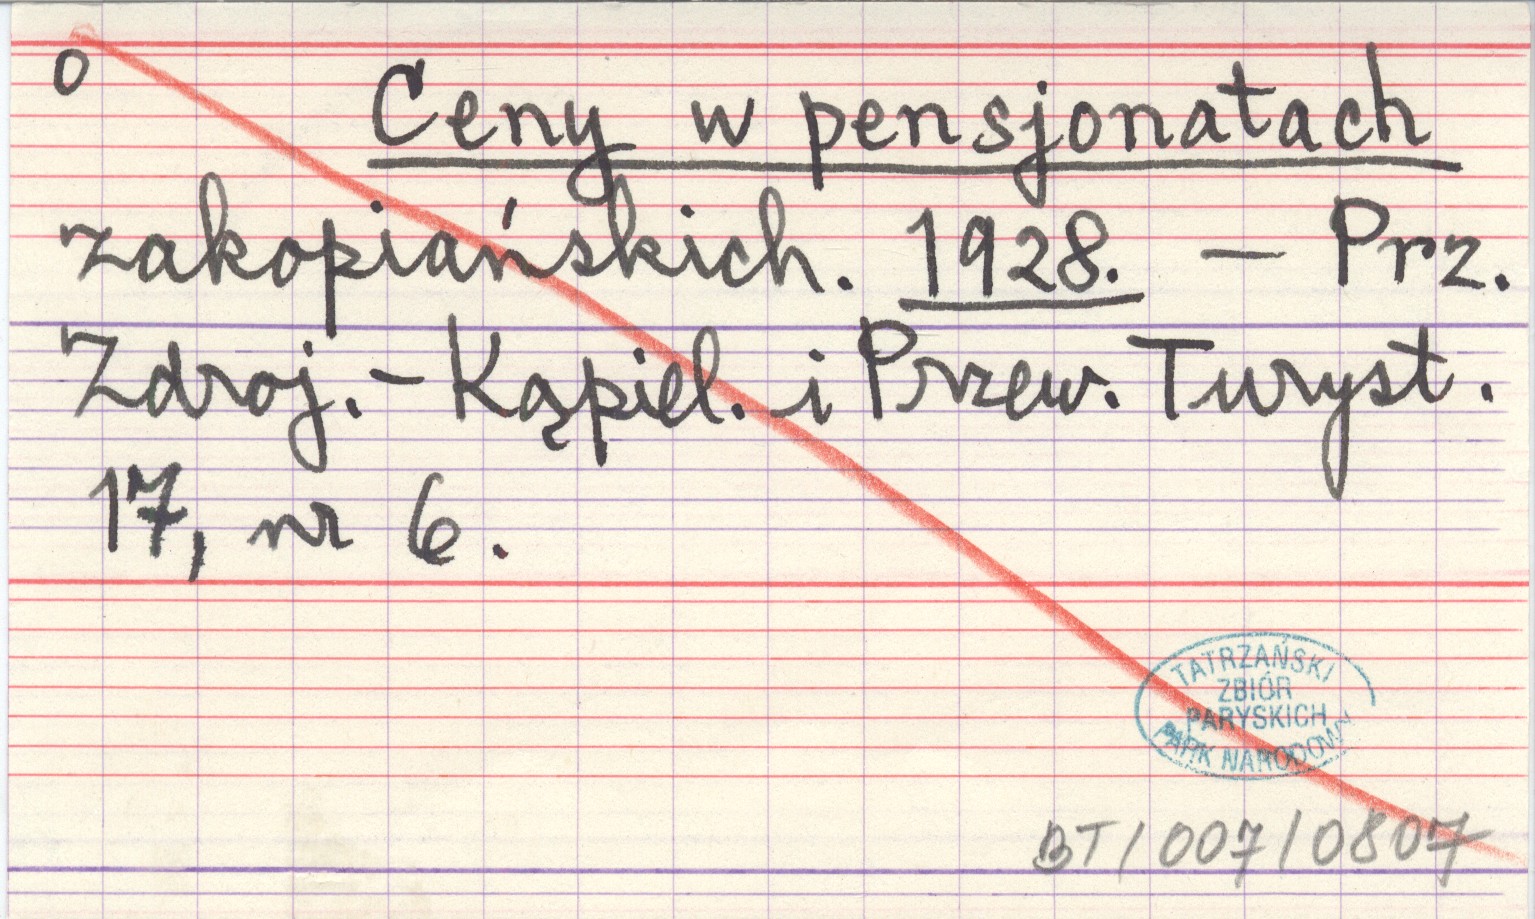 o
Ceny w pensjonatach
zakopiańskich. 1928. — Prz.
Zdroj.-Kąpiel. i Przew. Turyst.
17, nr 6.
TATRZAŃSKI
ZBIÓR
PARYSKICH
PARK NARODOWY
BT/007/0807